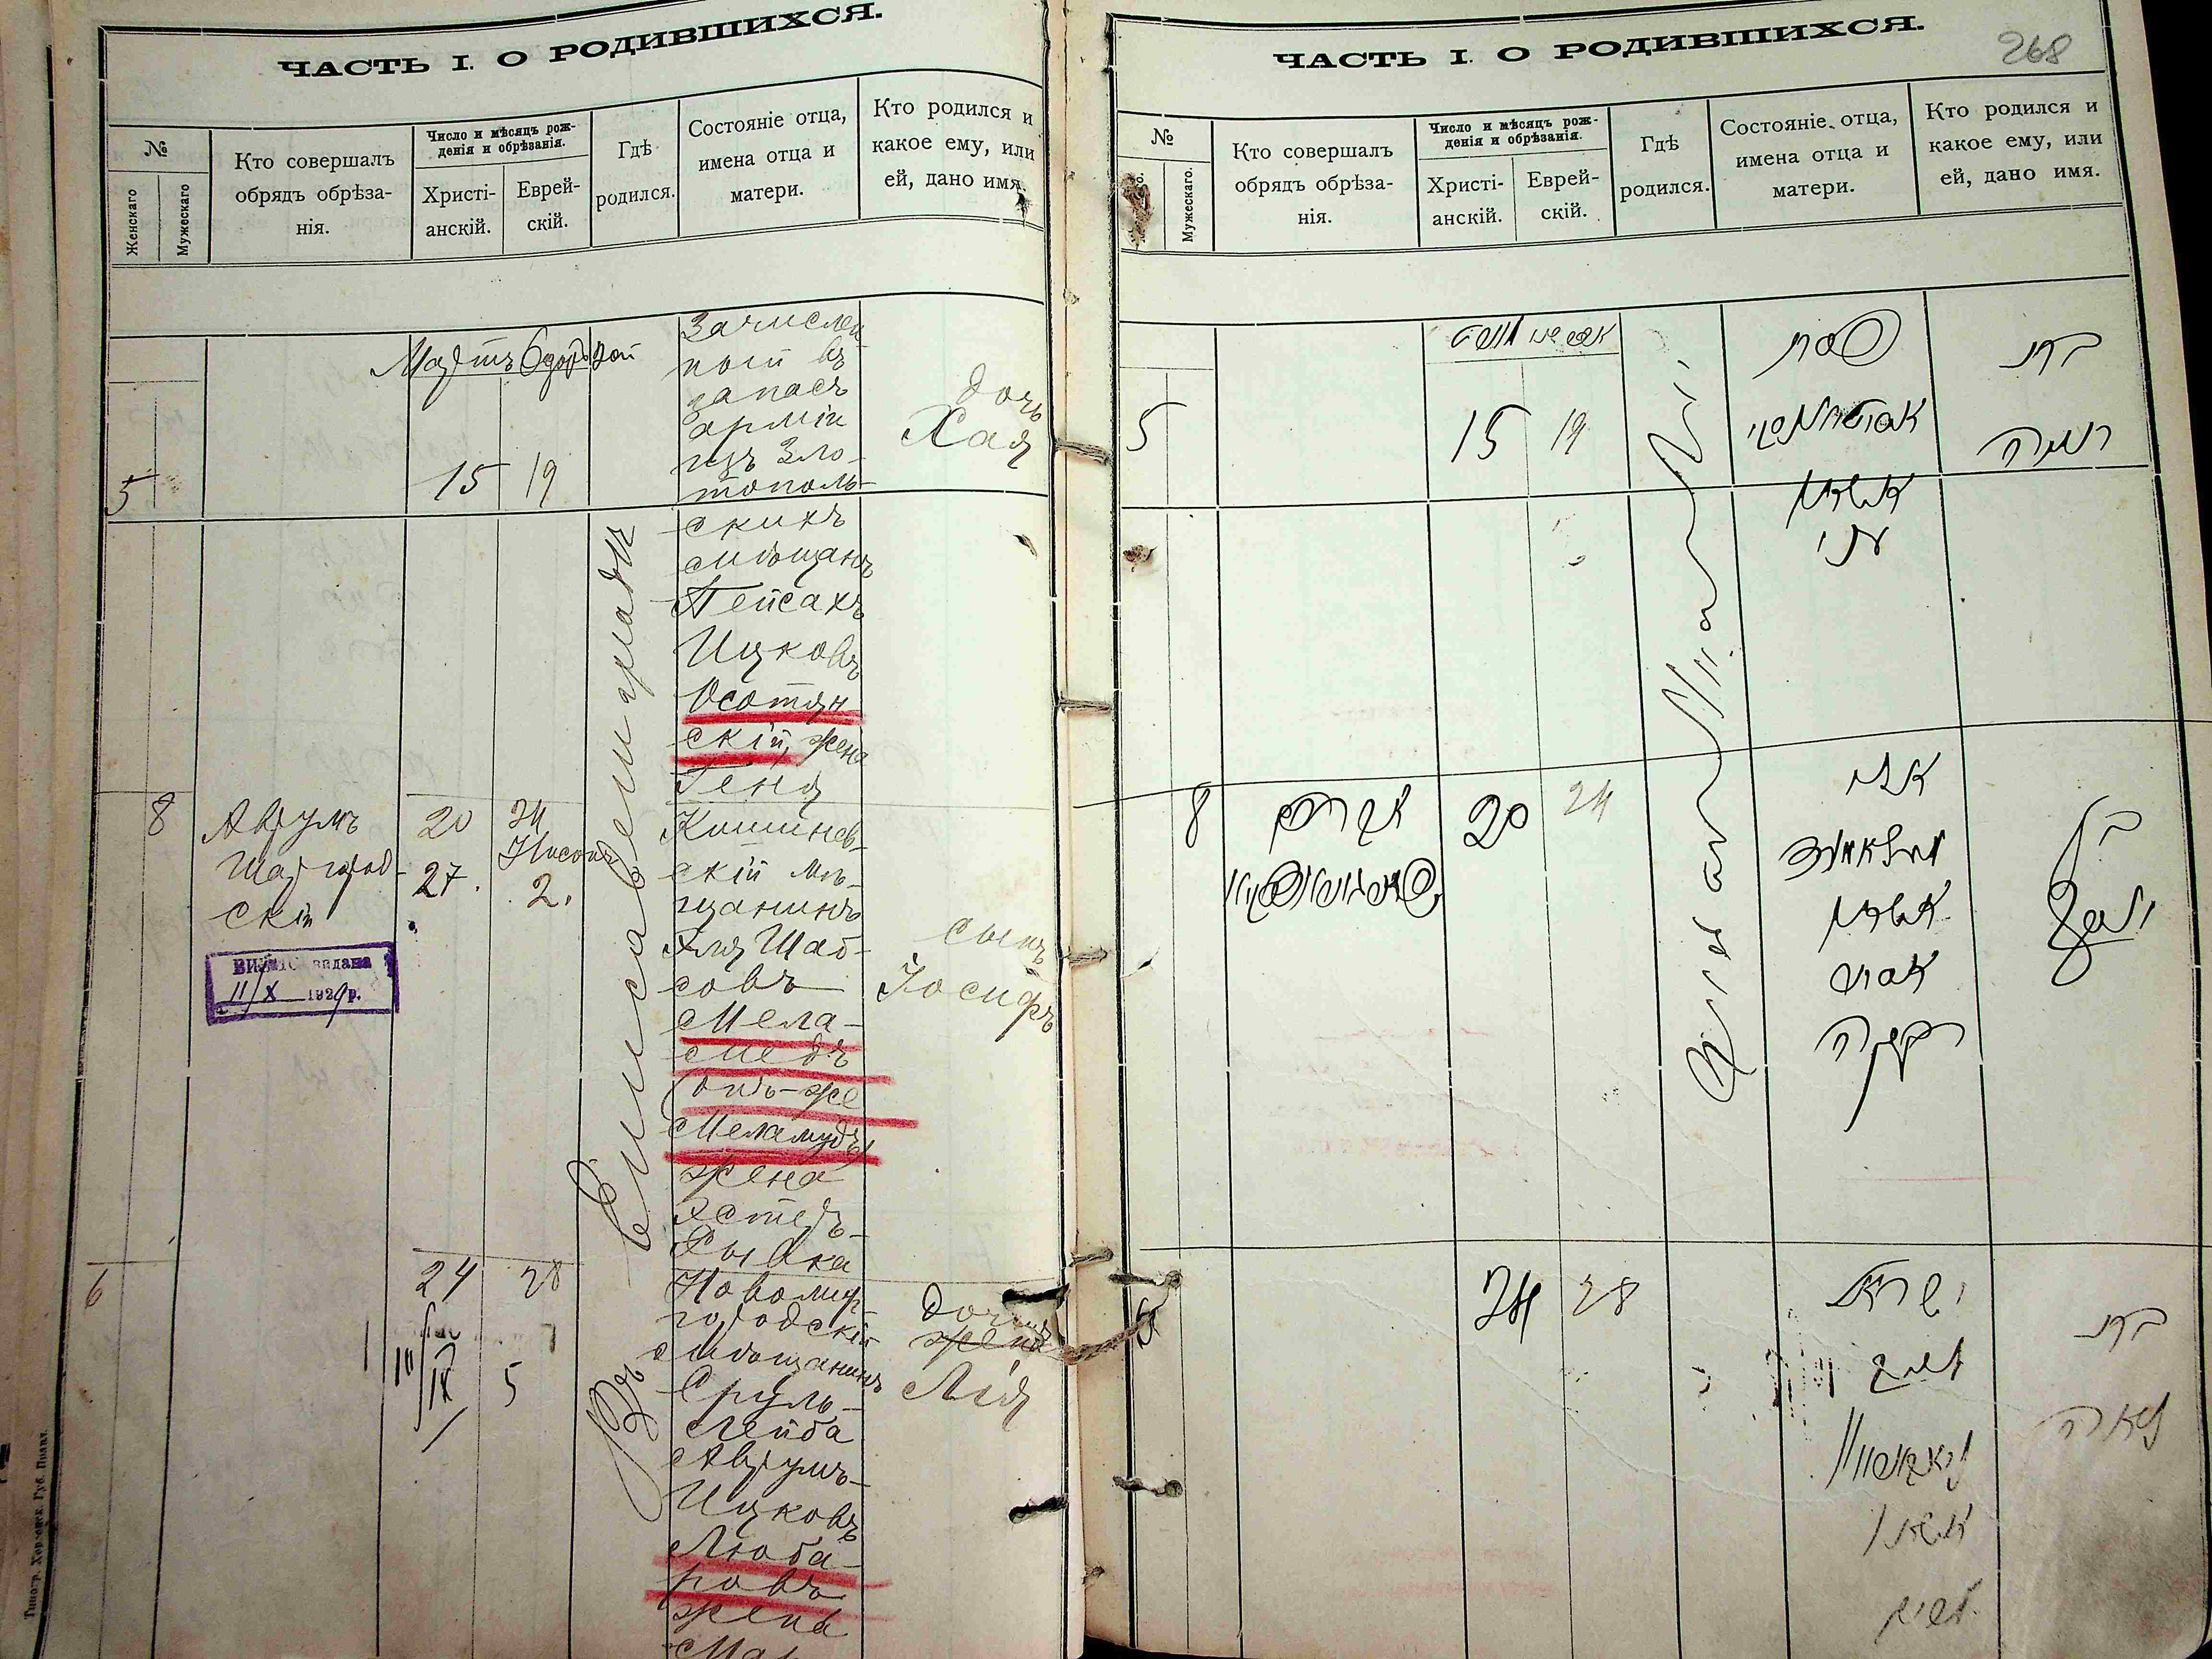 ЧАСТЬ I. О РОДИВШИХСЯ.
№
Женскаго
Мужескаго
Кто совершалъ
обрядъ обрѣза-
нія.
Число и мѣсяцъ рож-
денія и обрѣзанія.
Христі-
анскій.
Еврей-
скій.
Гдѣ
родился.
Состояніе отца,
имена отца и
матери.
Кто родился и
какое ему, или
ей, дано имя.
Мартъ
5
15
19
Зачислен-
ный въ
запасъ
арміи
изъ Зло-
тополь-
скихъ
мѣщанъ
Пейсахъ
Ицковъ
Осотян
скій, жена
Геня
дочь
Хая
Въ Елисаветградѣ
8
Аврумъ
Шаргород-
скій
20
24
Нисонъ
27.
2.
Кишинев-
скій мѣ-
щанинъ
Эля Шаб-
совъ
Мела-
медъ
(онъ-же
Меламудъ)
жена
Эстеръ-
Рывка
сынъ
Іосифъ
видана
11/X 1929 р.
6
24
28
5
Новомир-
городскій
мѣщанинъ
Сруль-
Лейба
Аврумъ-
Ицковъ
Люба-
ровъ
жена
дочь
жена
Лія
Типогр. Херсонск. Губ. Правл.
ЧАСТЬ I. О РОДИВШИХСЯ.
268
№
Мужескаго.
Кто совершалъ
обрядъ обрѣза-
нія.
Число и мѣсяцъ рож-
денія и обрѣзанія.
Христі-
анскій.
Еврей-
скій.
Гдѣ
родился.
Состояніе отца,
имена отца и
матери.
Кто родился и
какое ему, или
ей, дано имя.
5
15
19
פסח
אשתו
בת
חיה
8
אברהם
20
24
אלי
אשתו
אסתר
רבקה
בן
יוסף
24
28
ישראל
לייב
אשתו
בת
לאה